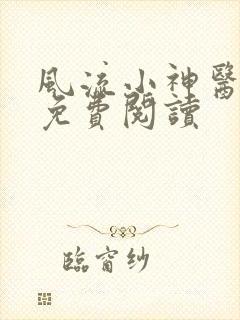 風流小神醫
免費閱讀
臨窗紗